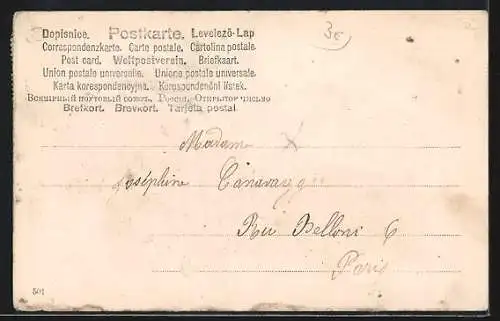 Dopisnice. Postkarte. Levelező-Lap
Correspondenzkarte. Carte postale. Cartolina postale.
Post card. Weltpostverein. Briefkaart.
Union postale universelle. Unione postale universale.
Karta korespondencyjna. Korespondenční lístek.
Всемірный почтовый союзъ. Россія. Открытое письмо
Brefkort. Brevkort. Tarjeta postal.
3€
Madame
Joséphine Canavaggi
Rue Belloni 6
Paris
501